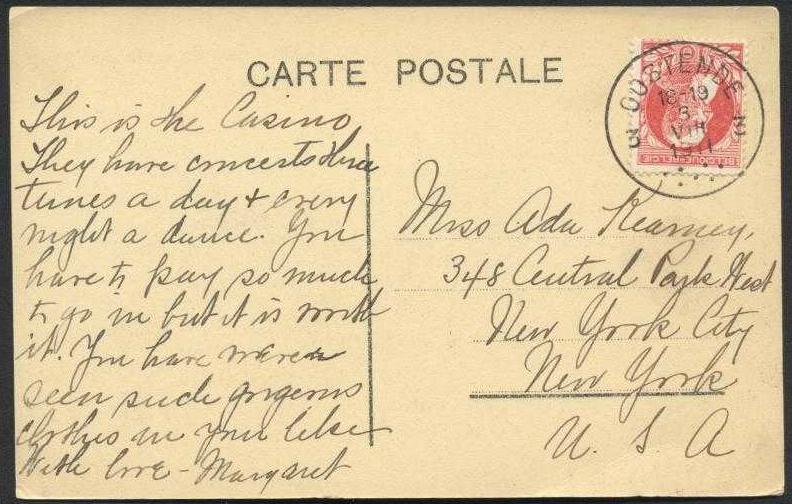 CARTE POSTALE
This is the Casino
They have concerts three
times a day & every
night a dance. You
have to pay so much
to go in but it is worth
it. You have never
seen such gorgeous
clothes in your life
With love - Margaret
3 OOSTENDE 3
18-19
8
VIII
1911
BELGIQUE-BELGIË
Miss Ada Kearney,
348 Central Park West
New York City
New York
U. S. A